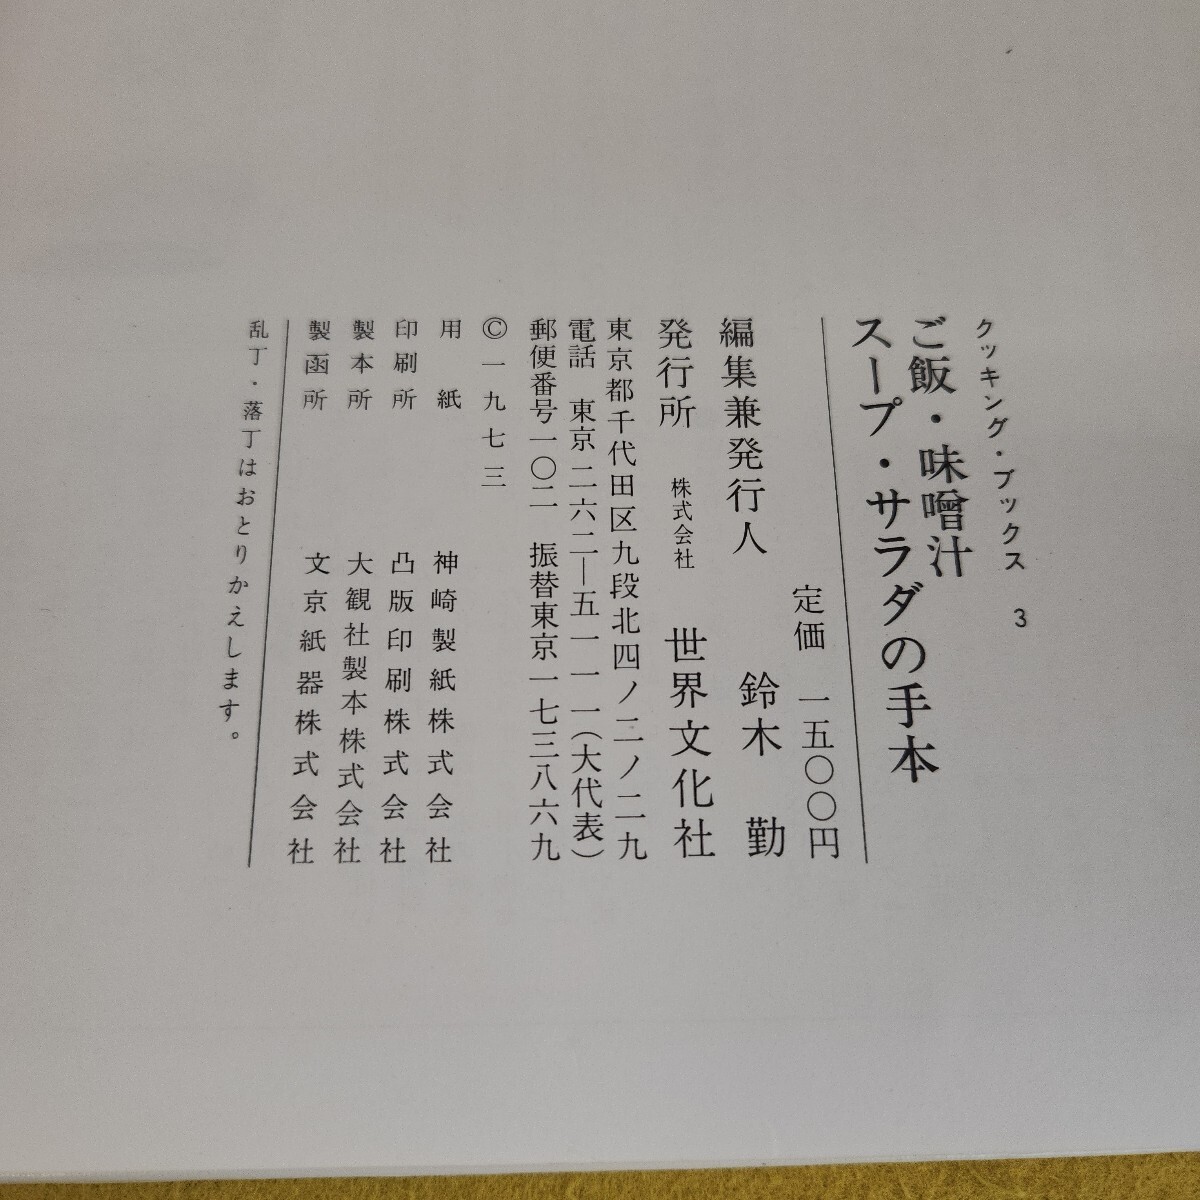 クッキング・ブックス 3
ご飯・味噌汁
スープ・サラダの手本
定価 一五〇〇円
編集兼発行人 鈴木 勤
発行所 株式会社 世界文化社
東京都千代田区九段北四ノ二ノ二九
電話 東京二六二―五一一一(大代表)
郵便番号一〇二 振替東京一七三八六九
©一九七三
用紙 神崎製紙株式会社
印刷所 凸版印刷株式会社
製本所 大観社製本株式会社
製函所 文京紙器株式会社
乱丁・落丁はおとりかえします。